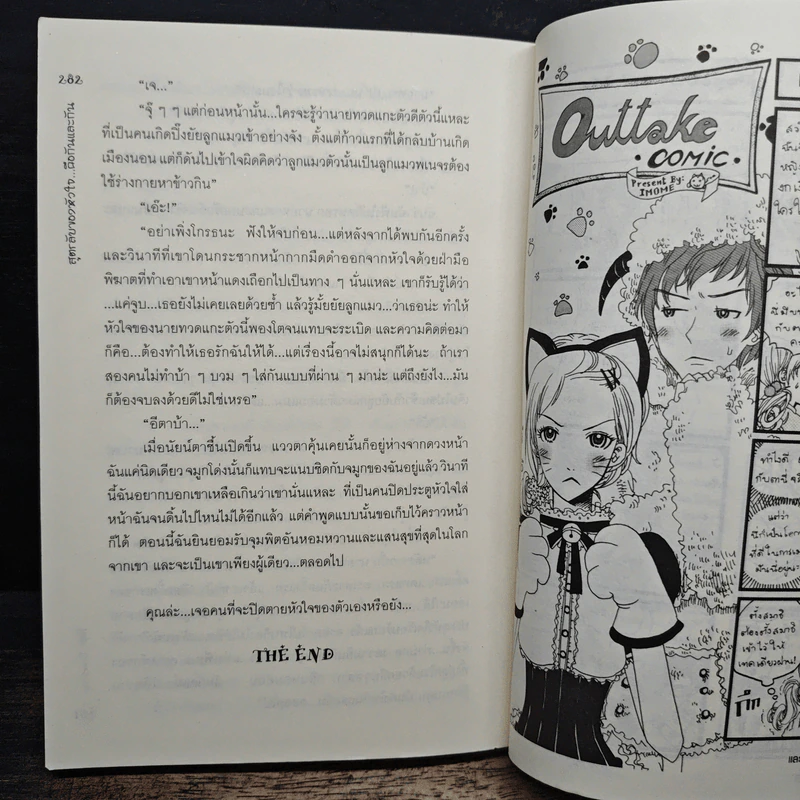 282
สูตรลับของหัวใจ...คือกันและกัน
“เจ...”
“จุ๊ ๆ ๆ แต่ก่อนหน้านั้น...ใครจะรู้ว่านายทวดแกะตัวดีตัวนี้แหละ
ที่เป็นคนเกิดปิ๊งยัยลูกแมวเข้าอย่างจัง ตั้งแต่ก้าวแรกที่ได้กลับบ้านเกิด
เมืองนอน แต่ก็ดันไปเข้าใจผิดคิดว่าลูกแมวตัวนั้นเป็นลูกแมวพเนจรต้อง
ใช้ร่างกายหาข้าวกิน”
“เอ๊ะ!”
“อย่าเพิ่งโกรธนะ ฟังให้จบก่อน...แต่หลังจากได้พบกันอีกครั้ง
และวินาทีที่เขาโดนกระชากหน้ากากมืดดำออกจากหัวใจด้วยฝ่ามือ
พิฆาตที่ทำเอาเขาหน้าแดงเถือกไปเป็นทาง ๆ นั่นแหละ เขาก็รับรู้ได้ว่า
...แค่จูบ...เธอยังไม่เคยเลยด้วยซ้ำ แล้วรู้มั้ยยัยลูกแมว...ว่าเธอน่ะ ทำให้
หัวใจของนายทวดแกะตัวนี้พองโตจนแทบจะระเบิด และความคิดต่อมา
ก็คือ...ต้องทำให้เธอรักฉันให้ได้...แต่เรื่องนี้อาจไม่สนุกก็ได้นะ ถ้าเรา
สองคนไม่ทำบ้า ๆ บวม ๆ ใส่กันแบบที่ผ่าน ๆ มาน่ะ แต่ถึงยังไง...มัน
ก็ต้องจบลงด้วยดีไม่ใช่เหรอ”
“อีตาบ้า...”
เมื่อนัยน์ตาชื้นเปิดขึ้น แววตาคุ้นเคยนั้นก็อยู่ห่างจากดวงหน้า
ฉันแค่นิดเดียว จมูกโด่งนั้นก็แทบจะแนบชิดกับจมูกของฉันอยู่แล้ว วินาที
นี้ฉันอยากบอกเขาเหลือเกินว่าเขานั่นแหละ ที่เป็นคนปิดประตูหัวใจใส่
หน้าฉันจนดิ้นไปไหนไม่ได้อีกแล้ว แต่คำพูดแบบนั้นขอเก็บไว้คราวหน้า
ก็ได้ ตอนนี้ฉันยินยอมรับจุมพิตอันหอมหวานและแสนสุขที่สุดในโลก
จากเขา และจะเป็นเขาเพียงผู้เดียว...ตลอดไป
คุณล่ะ...เจอคนที่จะปิดตายหัวใจของตัวเองหรือยัง...
THE END
Outtake
• COMIC •
Present By:
IMOME
แต่ว่า
ตั้งสมาธิ
ต้องตั้งสมาธิ
เข้าไว้ ให้
เทคเดียวผ่าน!
กึก